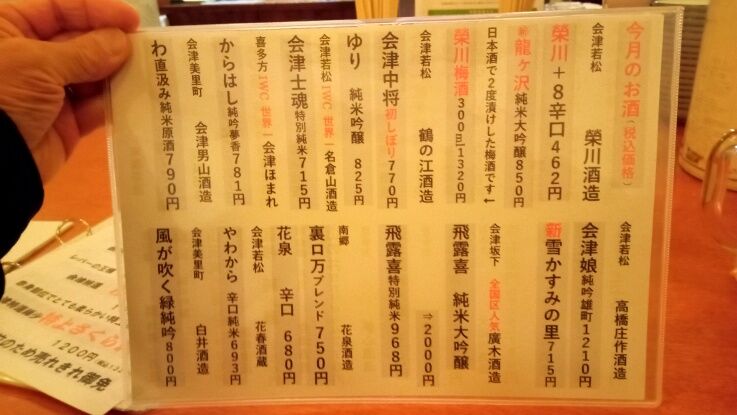 今月のお酒(税込価格)
会津若松 榮川酒造
榮川+8辛口462円
新龍ヶ沢純米大吟醸850円
日本酒で2度漬けした梅酒です↓
榮川梅酒300ml1320円
会津若松 鶴の江酒造
会津中将初しぼり770円
ゆり 純米吟醸 825円
会津若松IWC世界一名倉山酒造
会津士魂特別純米715円
喜多方IWC世界一会津ほまれ
からはし純吟夢香781円
会津美里町 会津男山酒造
わ直汲み純米原酒790円
会津若松 高橋庄作酒造
会津娘純吟雄町1210円
新雪かすみの里715円
会津坂下 全国区人気廣木酒造
飛露喜 純米大吟醸
⇒2000円
飛露喜特別純米968円
南郷 花泉酒造
裏ロ万ブレンド750円
花泉 辛口 680円
会津若松 花春酒蔵
やわから 辛口純米693円
会津美里町 白井酒造
風が吹く緑純吟800円
1200円